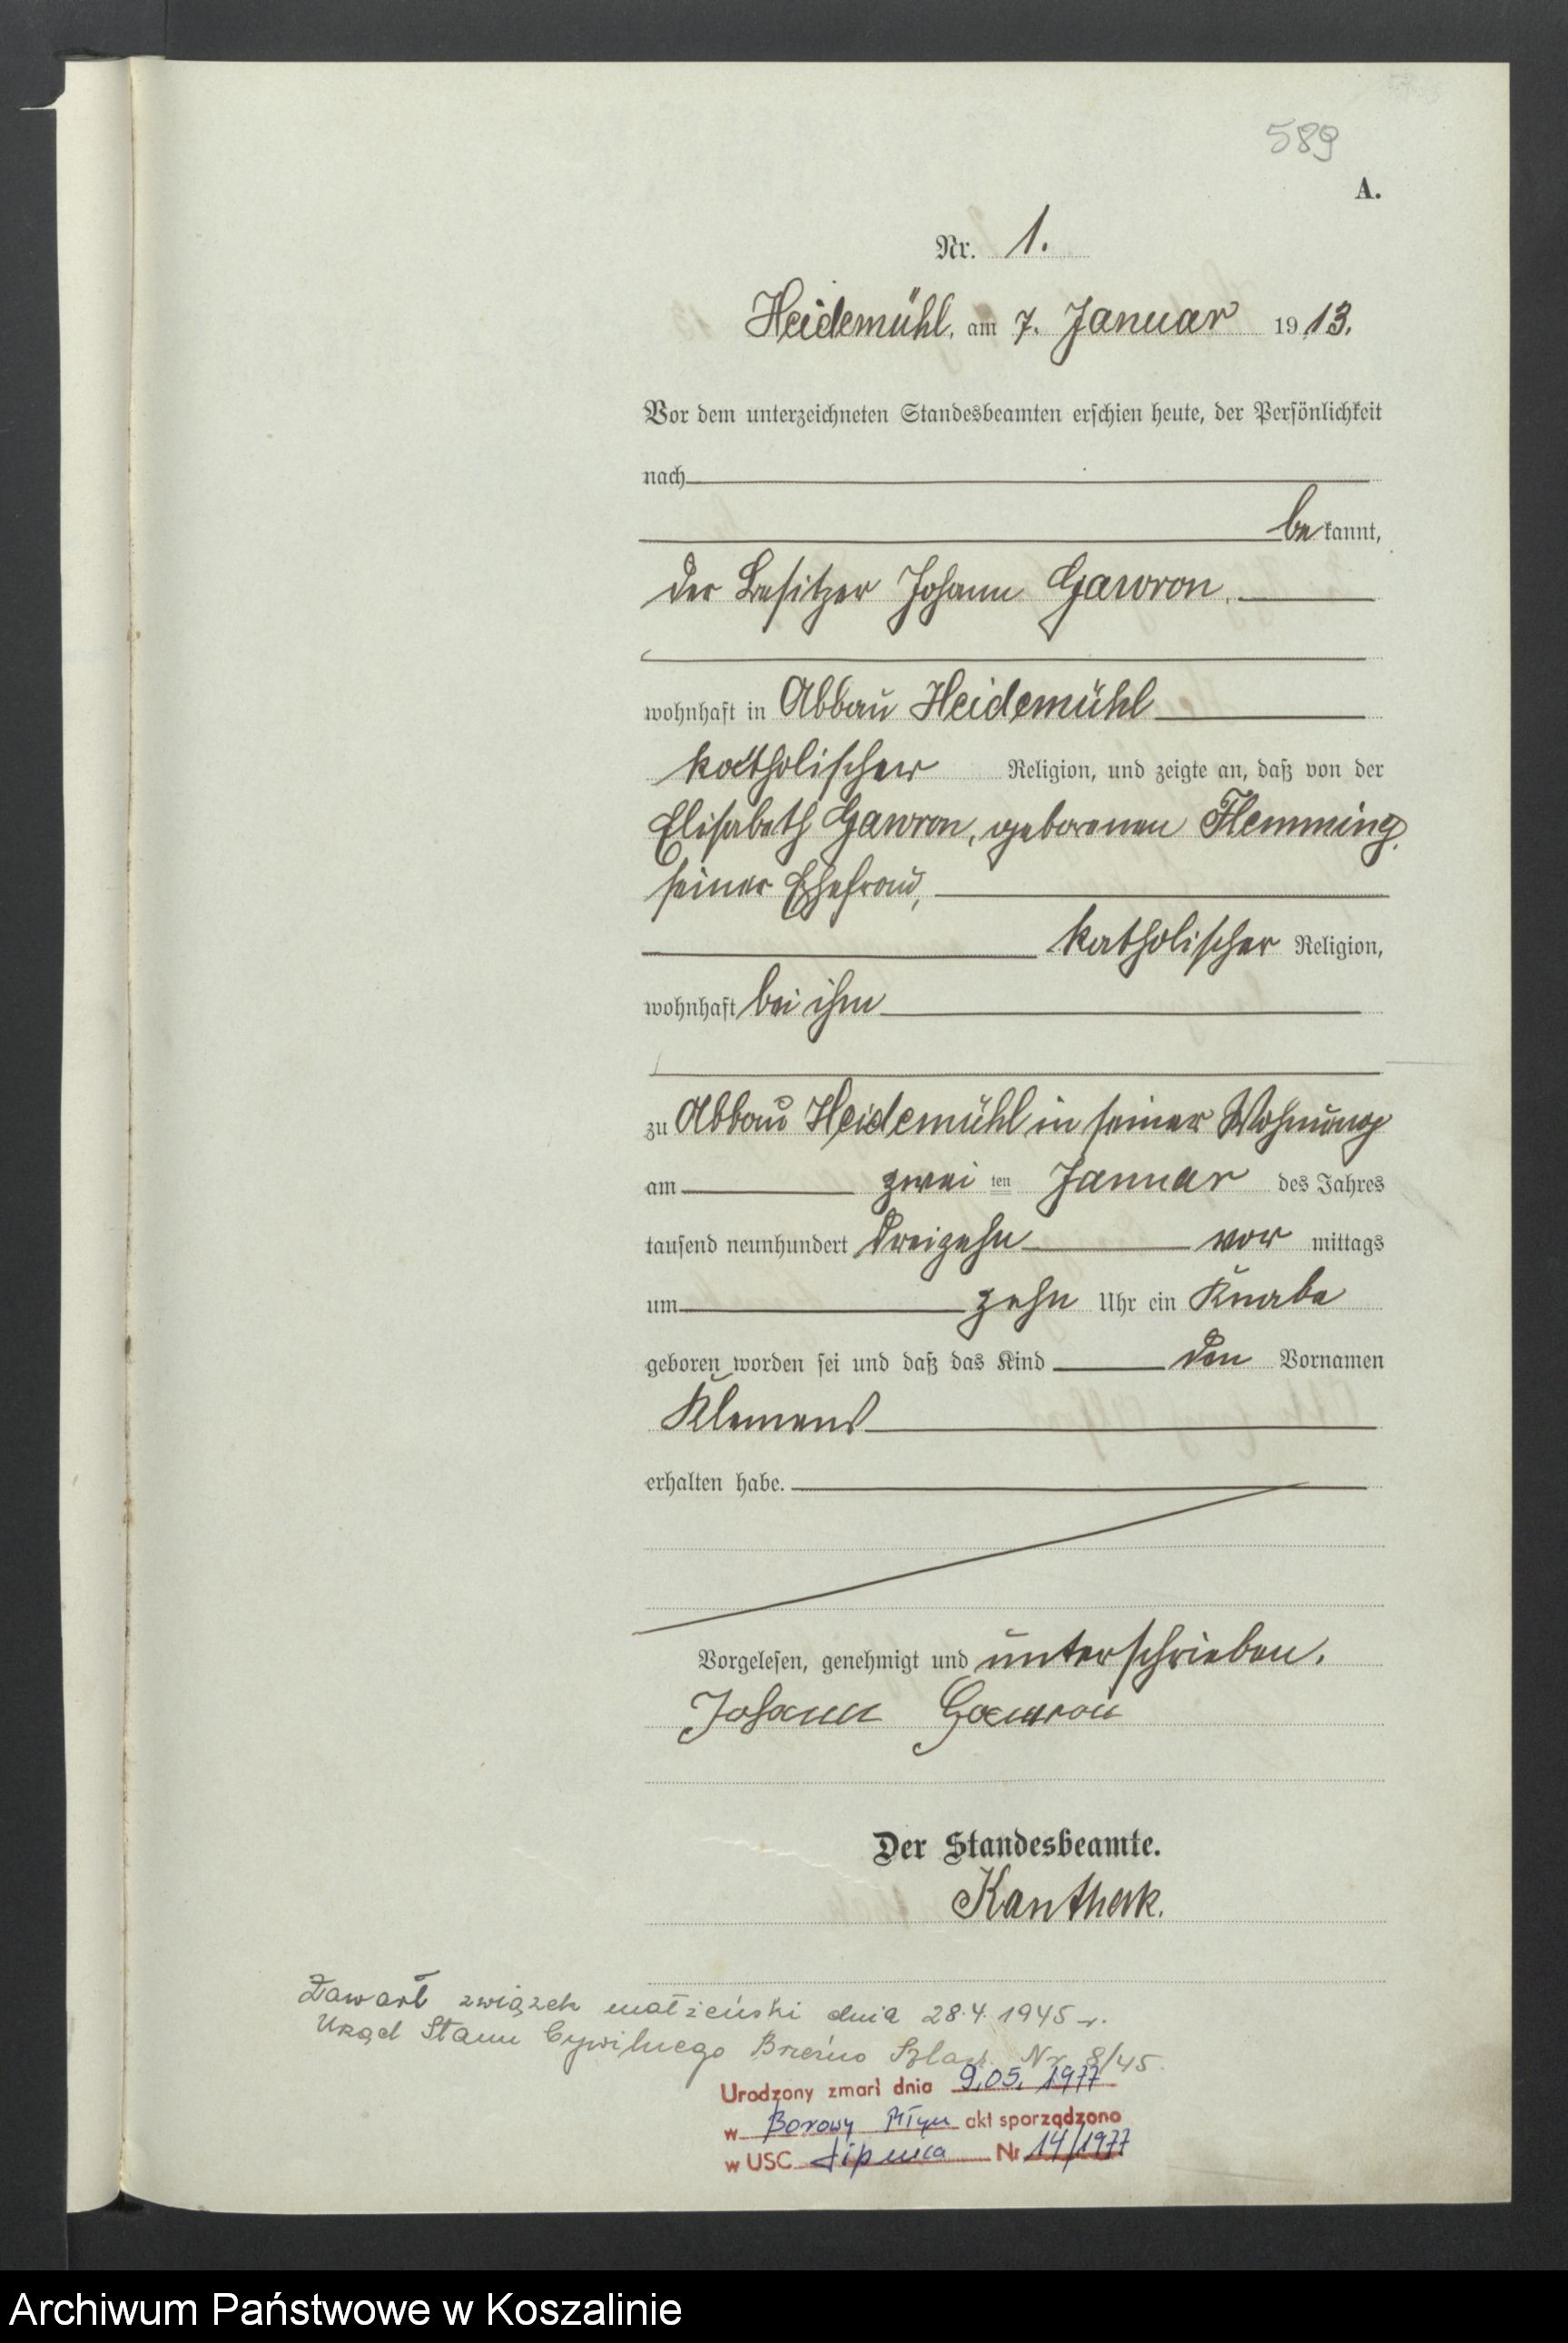 589
A.
Nr. 1.
Heidemühl, am 7. Januar 1913.
Vor dem unterzeichneten Standesbeamten erschien heute, der Persönlichkeit
nach
bekannt,
der Besitzer Johann Gawron,
wohnhaft in Abbau Heidemühl
katholischer Religion, und zeigte an, daß von der
Elisabeth Gawron, geborenen Flemming,
seiner Ehefrau,
katholischer Religion,
wohnhaft bei ihm
zu Abbau Heidemühl in seiner Wohnung
am zwei ten Januar des Jahres
tausend neunhundert dreizehn vor mittags
um zehn Uhr ein Knabe
geboren worden sei und daß das Kind den Vornamen
Klemens
erhalten habe.
Vorgelesen, genehmigt und unterschrieben.
Johann Gawron
Der Standesbeamte.
Kanthak.
Zawarł związek małżeński dnia 28.4.1945 r.
Urząd Stanu Cywilnego Brzeźno Szlach. Nr 8/45.
Urodzony zmarł dnia 9.05.1977
w Borowy Młyn akt sporządzono
w USC Lipnica Nr 14/1977
Archiwum Państwowe w Koszalinie